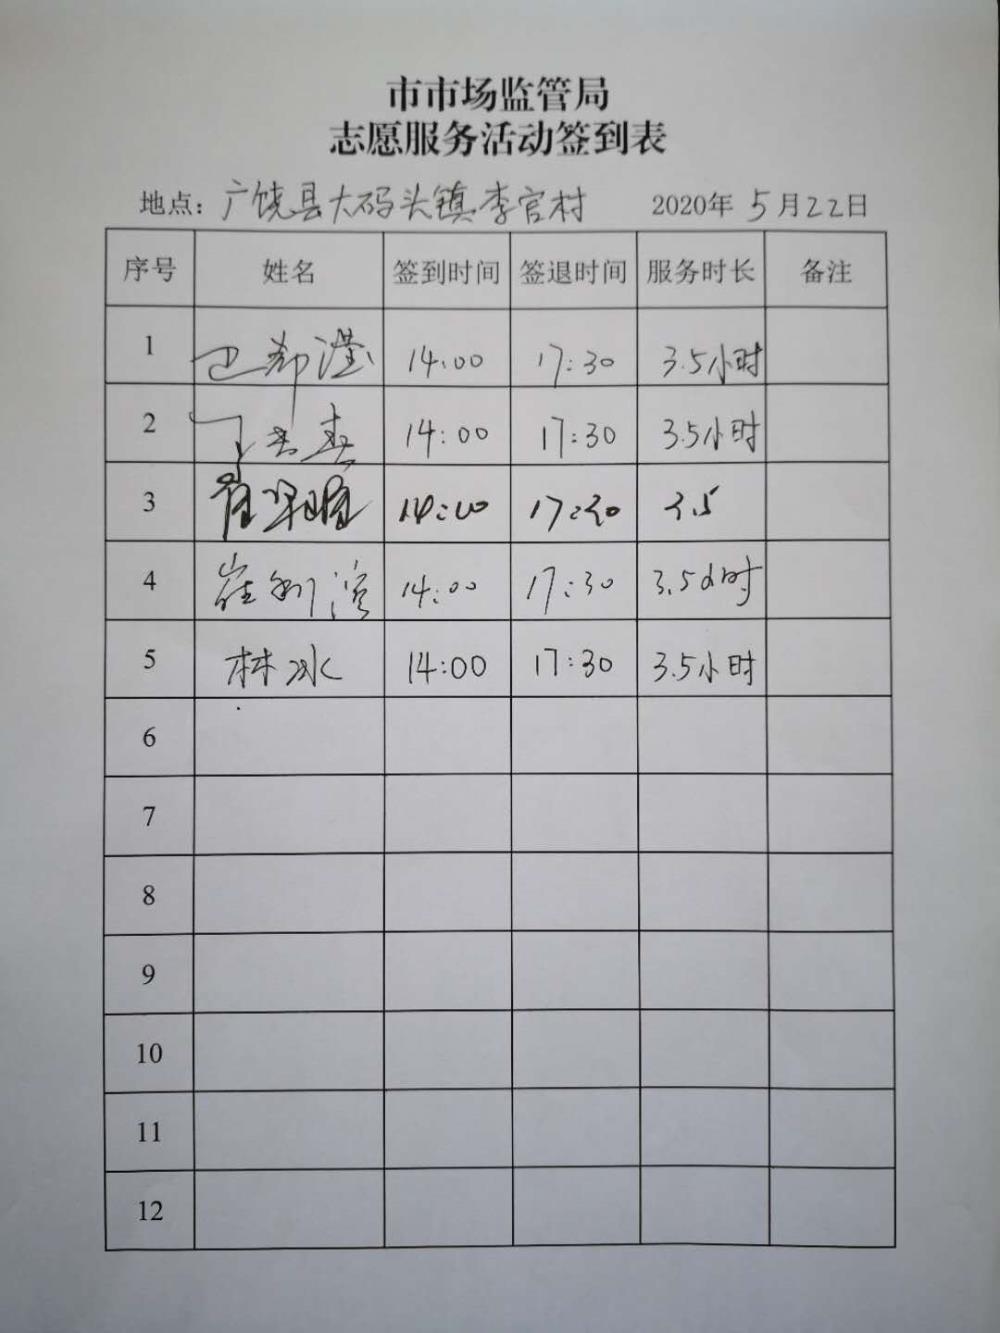 市市场监管局
志愿服务活动签到表
地点：广饶县大码头镇李官村 2020年 5月22日
序号 姓名 签到时间 签退时间 服务时长 备注
1 14:00 17:30 3.5小时
2 14:00 17:30 3.5小时
3 14:00 17:30 3.5
4 崔利滨 14:00 17:30 3.5小时
5 林冰 14:00 17:30 3.5小时
6
7
8
9
10
11
12